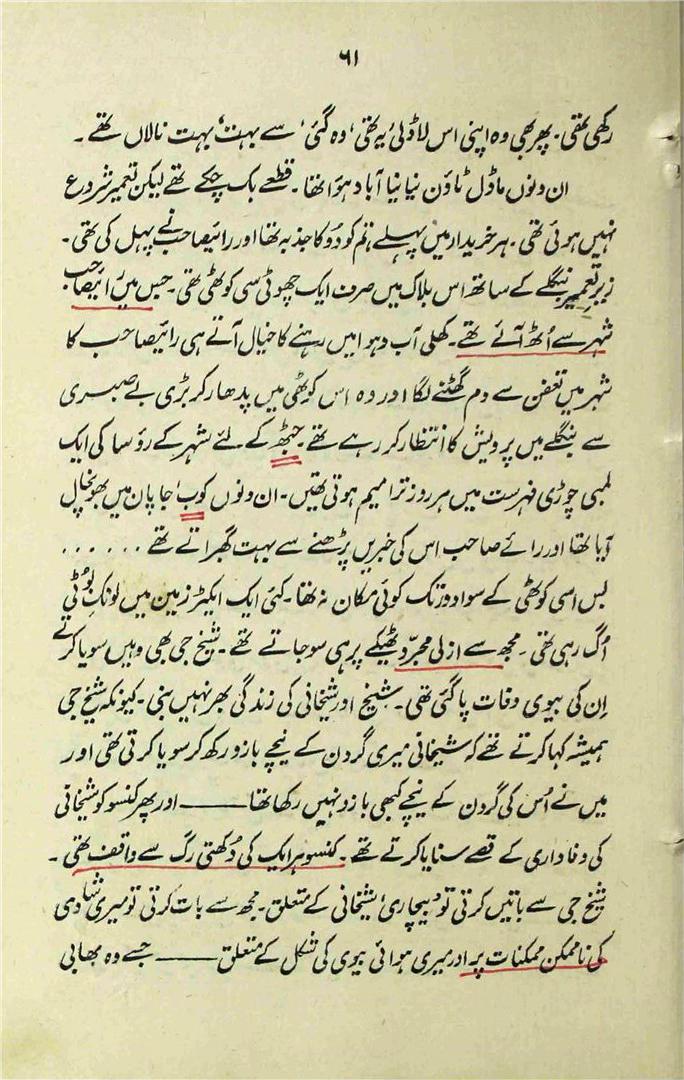 ۶۱
رکھی تھی۔ پھر بھی وہ اپنی اس لاڈلی 'یہ تھی' 'وہ گئی' سے بہت' بہت نالاں تھے۔
ان دنوں ماڈل ٹاؤن نیا نیا آباد ہؤا تھا۔ قطعے بک چکے تھے لیکن تعمیر شروع
نہیں ہوئی تھی۔ ہر خریدار میں پہلے تم کو دو کا جذبہ تھا اور رائیصاحب نے پہل کی تھی۔
زیر تعمیر بنگلے کے ساتھ اس بلاک میں صرف ایک چھوٹی سی کوٹھی تھی۔ جس میں رائیصاحب
شہر سے اُٹھ آئے تھے۔ کھلی آب و ہوا میں رہنے کا خیال آتے ہی رائیصاحب کا
شہر میں تعفن سے دم گھٹنے لگا اور وہ اس کوٹھی میں پدھار کر بڑی بے صبری
سے بنگلے میں پرویش کا انتظار کر رہے تھے۔ جٹھ کے لئے شہر کے رؤسا کی ایک
لمبی چوڑی فہرست میں ہر روز ترامیم ہوتی تھیں۔ ان دنوں کوب' جاپان میں بھونچال
آیا تھا اور رائے صاحب اس کی خبریں پڑھنے سے بہت گھبراتے تھے ......
بس اسی کوٹھی کے سوا دور تک کوئی مکان نہ تھا۔ کئی ایک ایکڑ زمین میں لونک بُوٹی
اُگ رہی تھی۔ مجھ سے ازلی مجرّد ٹھیکے پر ہی سو جاتے تھے۔ شیخ جی بھی وہیں سویا کرتے
اِن کی بیوی وفات پا گئی تھی۔ شیخ اور شیخانی کی زندگی بھر نہیں بنی۔ کیونکہ شیخ جی
ہمیشہ کہا کرتے تھے کہ شیخانی میری گردن کے نیچے بازو رکھ کر سویا کرتی تھی اور
میں نے اُس کی گردن کے نیچے کبھی بازو نہیں رکھا تھا ——— اور پھر کنسو کو شیخانی
کی وفاداری کے قصے سنایا کرتے تھے۔ کنسو ہر ایک کی دُکھتی رگ سے واقف تھی۔
شیخ جی سے باتیں کرتی تو 'بیچاری' شیخانی کے متعلق۔ مجھ سے بات کرتی تو میری شادی
کی ناممکن ممکنات پر اور میری ہوائی بیوی کی شکل کے متعلق ——— جسے وہ بھابی